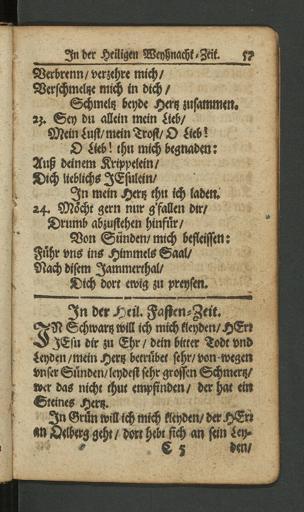 In der Heiligen Weyhnacht-Zeit. 57
Verbrenn/ verzehre mich/
Verschmeltze mich in dich/
Schmeltz beyde Hertz zusammen.
23. Sey du allein mein Lieb/
Mein Lust/ mein Trost/ O Lieb!
O Lieb! thu mich begnaden:
Auß deinem Krippelein/
Dich lieblichs JEsulein/
In mein Hertz thu ich laden.
24. Möcht gern nur g'fallen dir/
Drumb abzustehen hinfür/
Von Sünden/ mich befleissen:
Führ vns ins Himmels Saal/
Nach disem Jammerthal/
Dich dort ewig zu preysen.
In der Heil. Fasten-Zeit.
IN Schwartz will ich mich kleyden/ HErr
JEsu dir zu Ehr/ dein bitter Todt vnd
Leyden/ mein Hertz betrübet sehr/ von-wegen
vnser Sünden/ leydest sehr grossen Schmertz/
wer das nicht thut empfinden/ der hat ein
Steines Hertz.
In Grün will ich mich kleyden/ der HErr
an Oelberg geht/ dort hebt sich an sein Ley-
C 5 den/